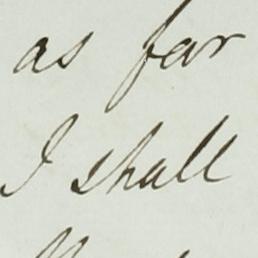 as far
I shall